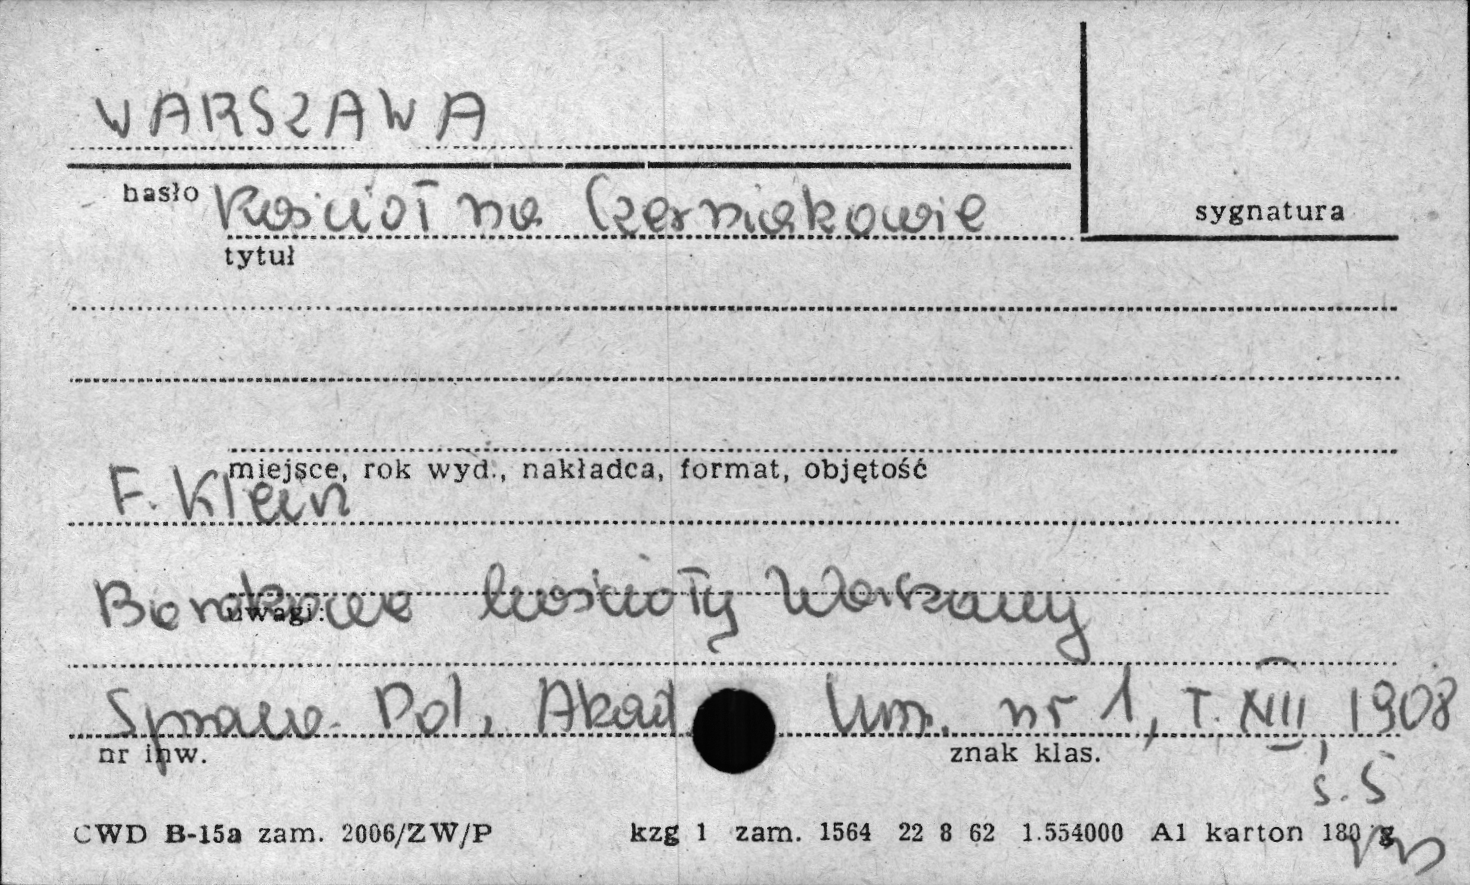 WARSZAWA
hasło Kościół na Czerniakowie
sygnatura
tytuł
miejsce, rok wyd., nakładca, format, objętość
F. Klein
Barokowe kościoły Warszawy
uwagi:
Spraw. Pol. Akad Um. nr 1, T. XIII, 1908
nr inw. znak klas.
s. 5
CWD B-15a zam. 2006/ZW/P kzg 1 zam. 1564 22 8 62 1.554000 A1 karton 180 g